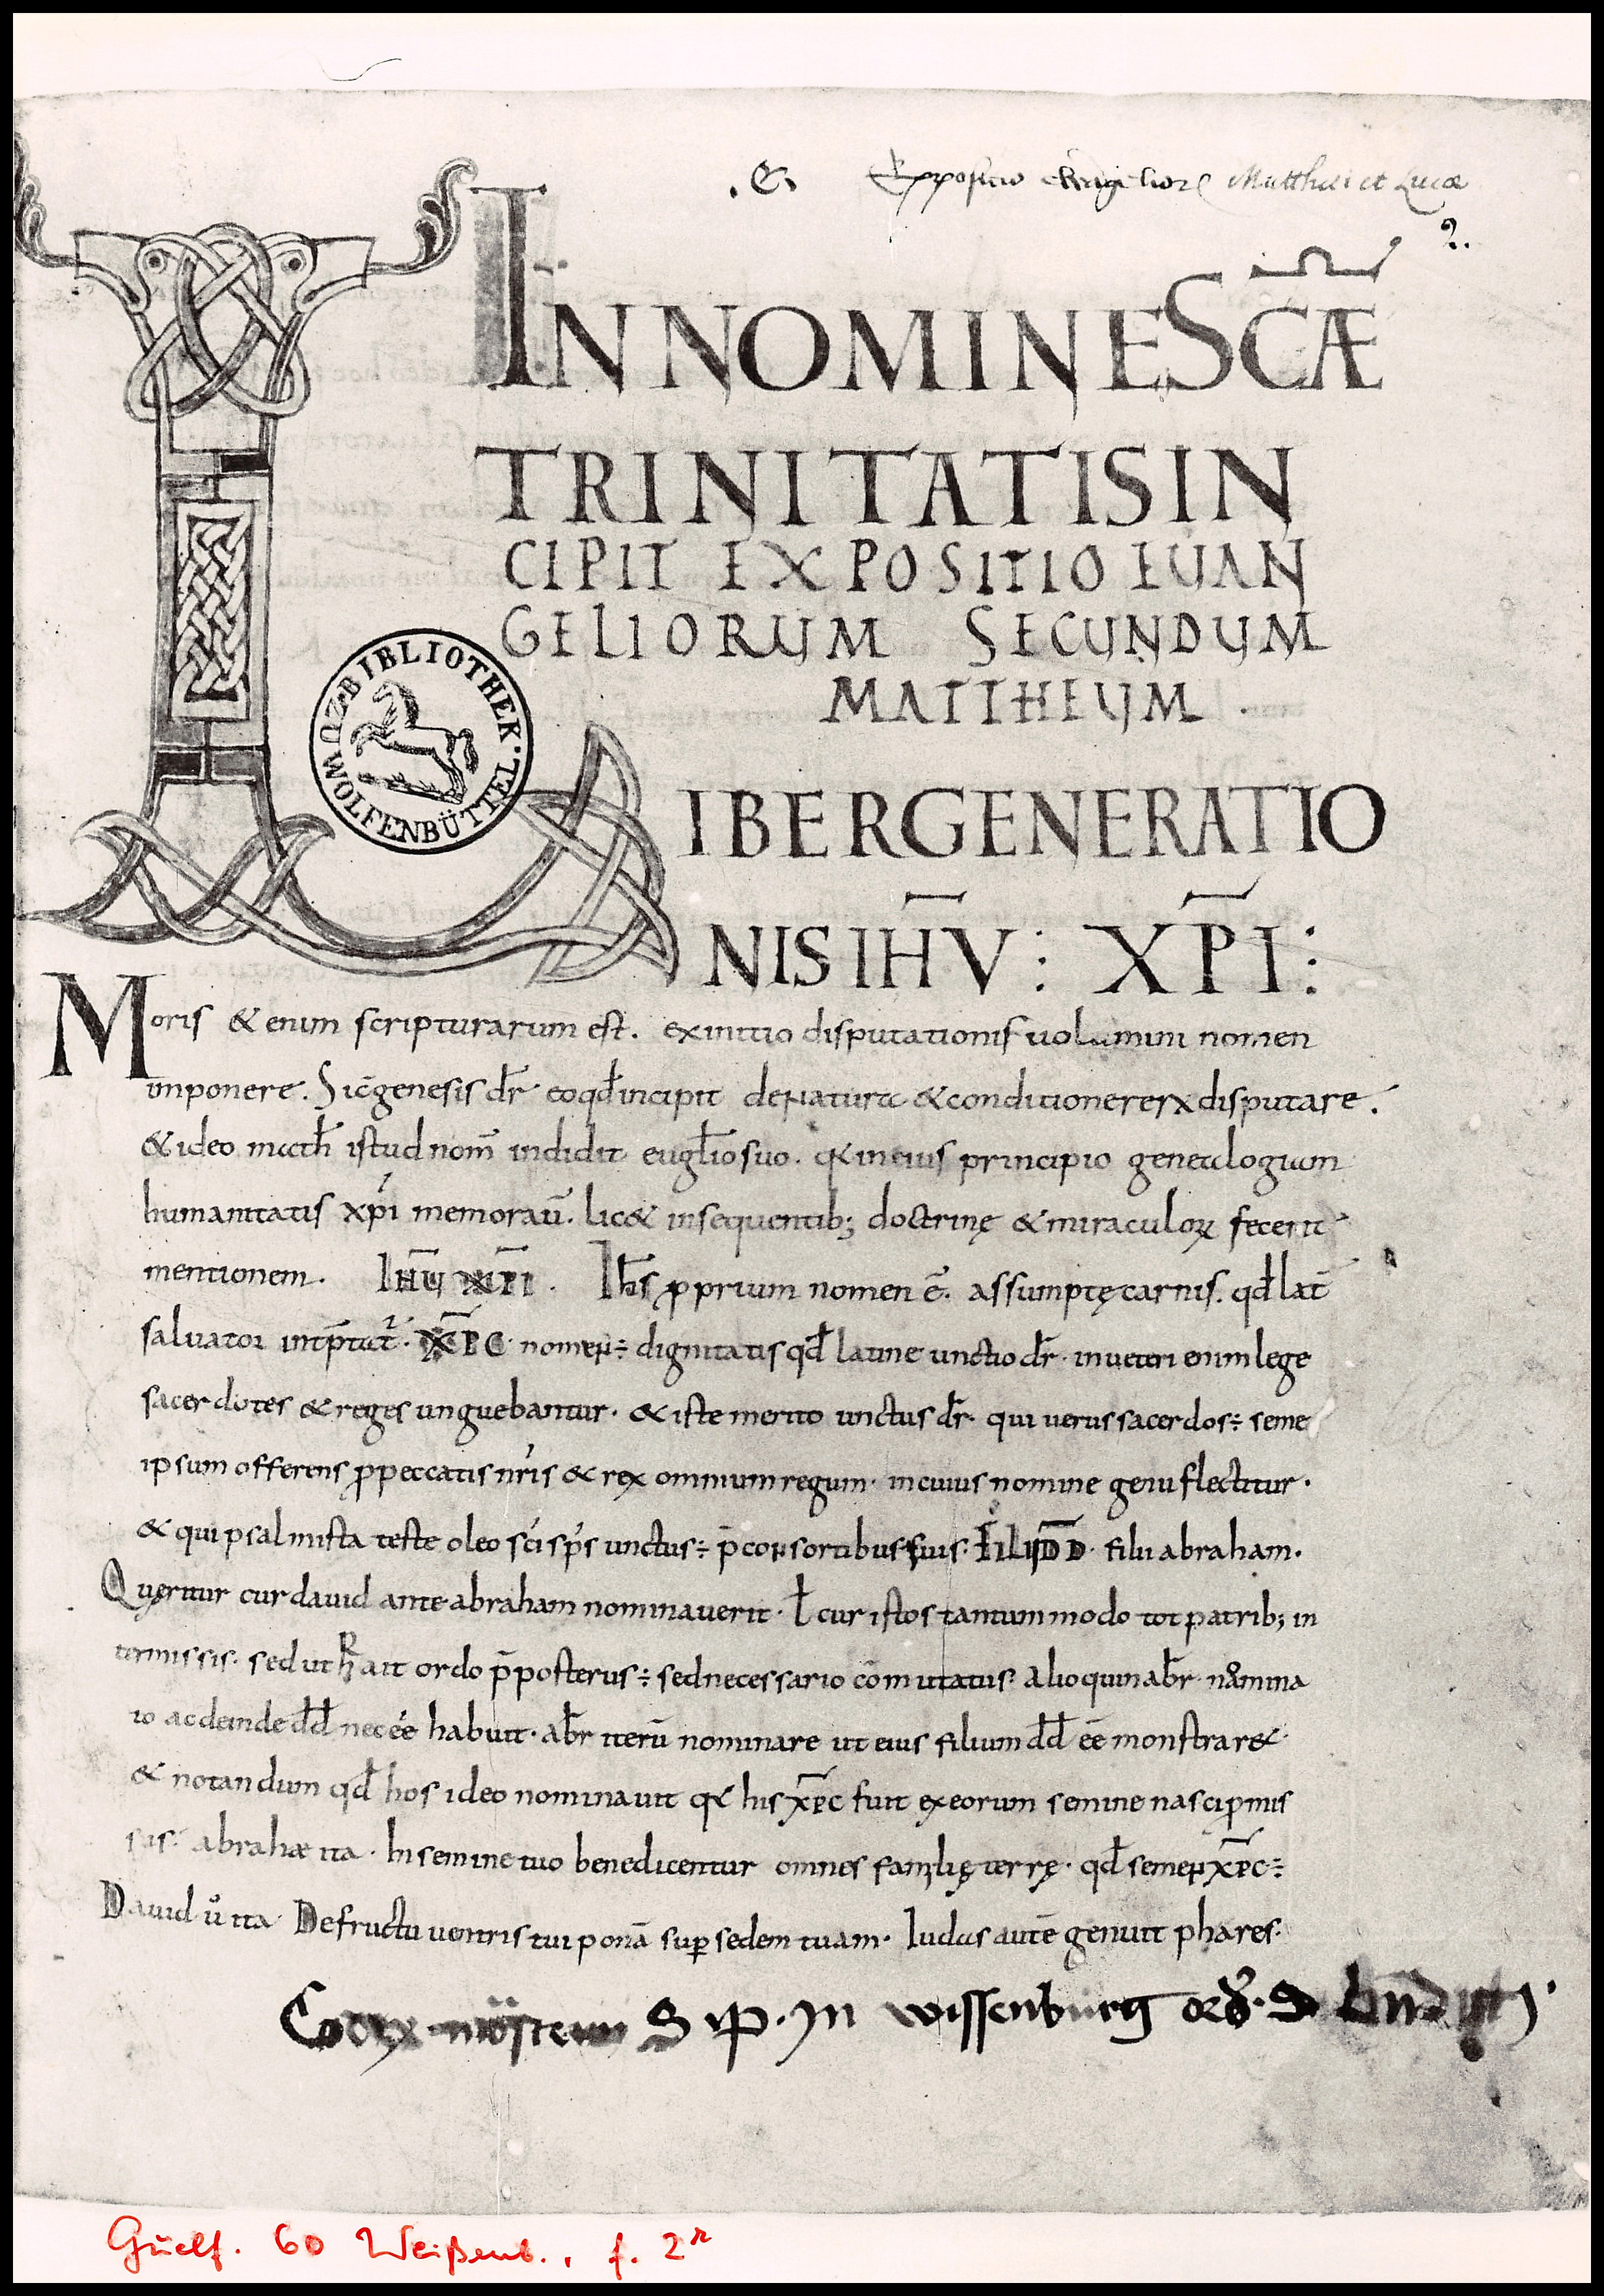 .G. Expositio Evangelior Matthaei et Lucae
2.
IN NOMINE SCÆ
TRINITATIS IN
CIPIT EXPOSITIO EUAN
GELIORUM SECUNDUM
MATTHEUM .
BIBLIOTHEK · WOLFENBÜTTEL ·
LIBER GENERATIO
NIS IHV̄ : XP̄I :
Moris & enim scripturarum est. ex initio disputationis uolumini nomen
imponere. Sic genesis dr̄ eo qđ incipit de natura & conditione rerꝝ disputare.
& ideo math̄ istud nom̄ indidit eugl̄io suo. q̄a in eius principio genealogiam
humanitatis xp̄i memorau̅. lic& in sequentib; doctrinę & miraculoꝝ fecerit
mentionem. IHŪ XPI . Ih̄s ꝓprium nomen ē. assumptę carnis. qđ lat̄
saluator int̄p̄tat̄. XP̄C nomen ÷ dignitatis qđ latine unctio dr̄. in ueteri enim lege
sacerdotes & reges unguebantur. & iste merito unctus dr̄. qui uerus sacerdos ÷ seme
ipsum offerens ꝓ peccatis nr̄is & rex omnium regum. in cuius nomine genu flectitur.
& qui psalmista teste oleo sc̄i sp̄s unctus ÷ p̄ consortibus suis. FILII DD̄. filii abraham.
Quęritur cur dauid ante abraham nominauerit. ł cur istos tantum modo tot patrib; in
termissis. sed ut h̄ ait ordo p̄posterus ÷ sed necessario com̄utatus. alioquin abr̄ nomina
to ac deinde dđ nec ēe habuit. abr̄ iterū nominare ut eius filium dđ ēe monstrar&.
& notandum qđ hos ideo nominauit q̄a his xp̄c fuit ex eorum semine nasci ꝓmis
sus. abrahæ ita. In semine tuo benedicentur omnes familię terrę. qđ semen xp̄c ÷
Dauid ů ita De fructu uentris tui ponā suꝑ sedem tuam. Iudas autē genuit phares.
Codex S ꝫ p. in wissenburg ord. S
Guelf. 60 Weißenb., f. 2r